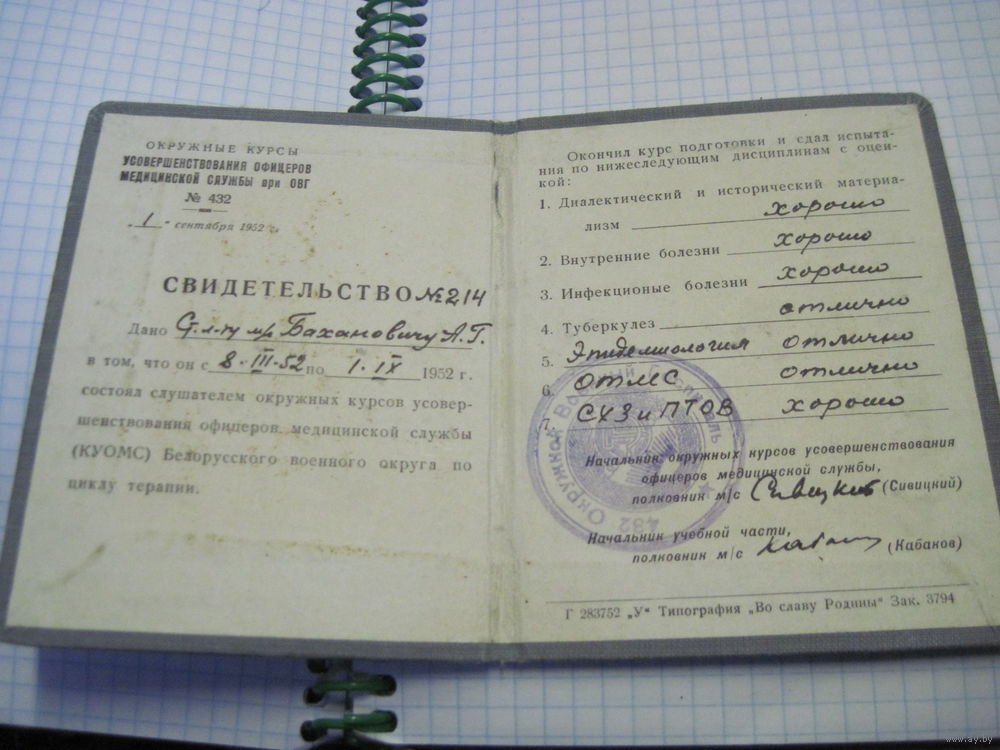 ОКРУЖНЫЕ КУРСЫ
УСОВЕРШЕНСТВОВАНИЯ ОФИЦЕРОВ
МЕДИЦИНСКОЙ СЛУЖБЫ при ОВГ
№ 432
„1“ сентября 1952 г.
СВИДЕТЕЛЬСТВО №214
Дано Ст. л-ту м/с Бахановичу А.Г.
в том, что он с 8-III-52 по 1.IX 1952 г.
состоял слушателем окружных курсов усовер-
шенствования офицеров медицинской службы
(КУОМС) Белорусского военного округа по
циклу терапии.
Окончил курс подготовки и сдал испыта-
ния по нижеследующим дисциплинам с оцен-
кой:
1. Диалектический и исторический материа-
лизм хорошо
2. Внутренние болезни хорошо
3. Инфекционые болезни хорошо
4. Туберкулез отлично
5. Эпидемиология отлично
6. ОТМС отлично
7. СХЗ и ПТОВ хорошо
Начальник окружных курсов усовершенствования
офицеров медицинской службы,
полковник м/с Сивицкий (Сивицкий)
Начальник учебной части,
полковник м/с (Кабаков)
Г 283752 „У“ Типография „Во славу Родины“ Зак. 3794
432 Окружной Военный Госпиталь
www.ay.by